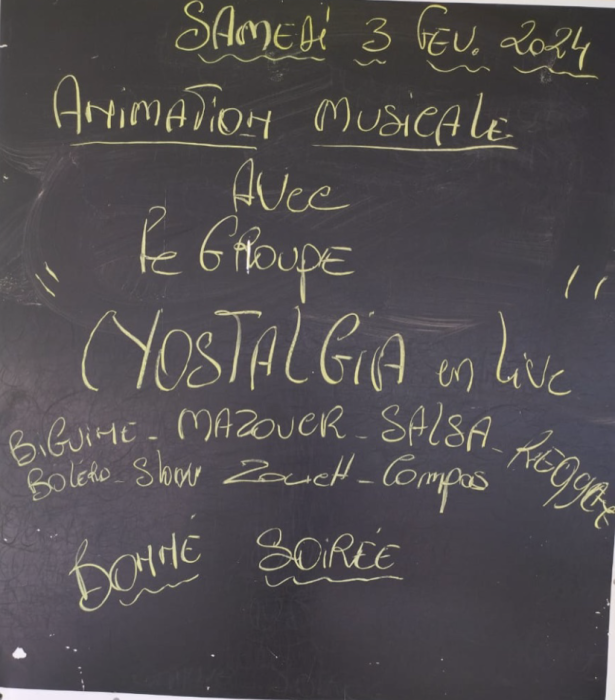 SAMEDI 3 FEV. 2024
ANIMATION MUSICALE
AVEC
Le GROUPE
" NOSTALGIA en Live "
BIGUINE - MAZOUER - SALSA - REGGAE
BOLERO - Slow Zouck - Compas
BONNE SOIRÉE